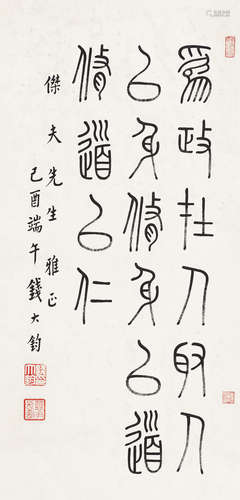 為政在人取人
以身脩身以道
脩道以仁
傑夫先生雅正
己酉端午錢大鈞